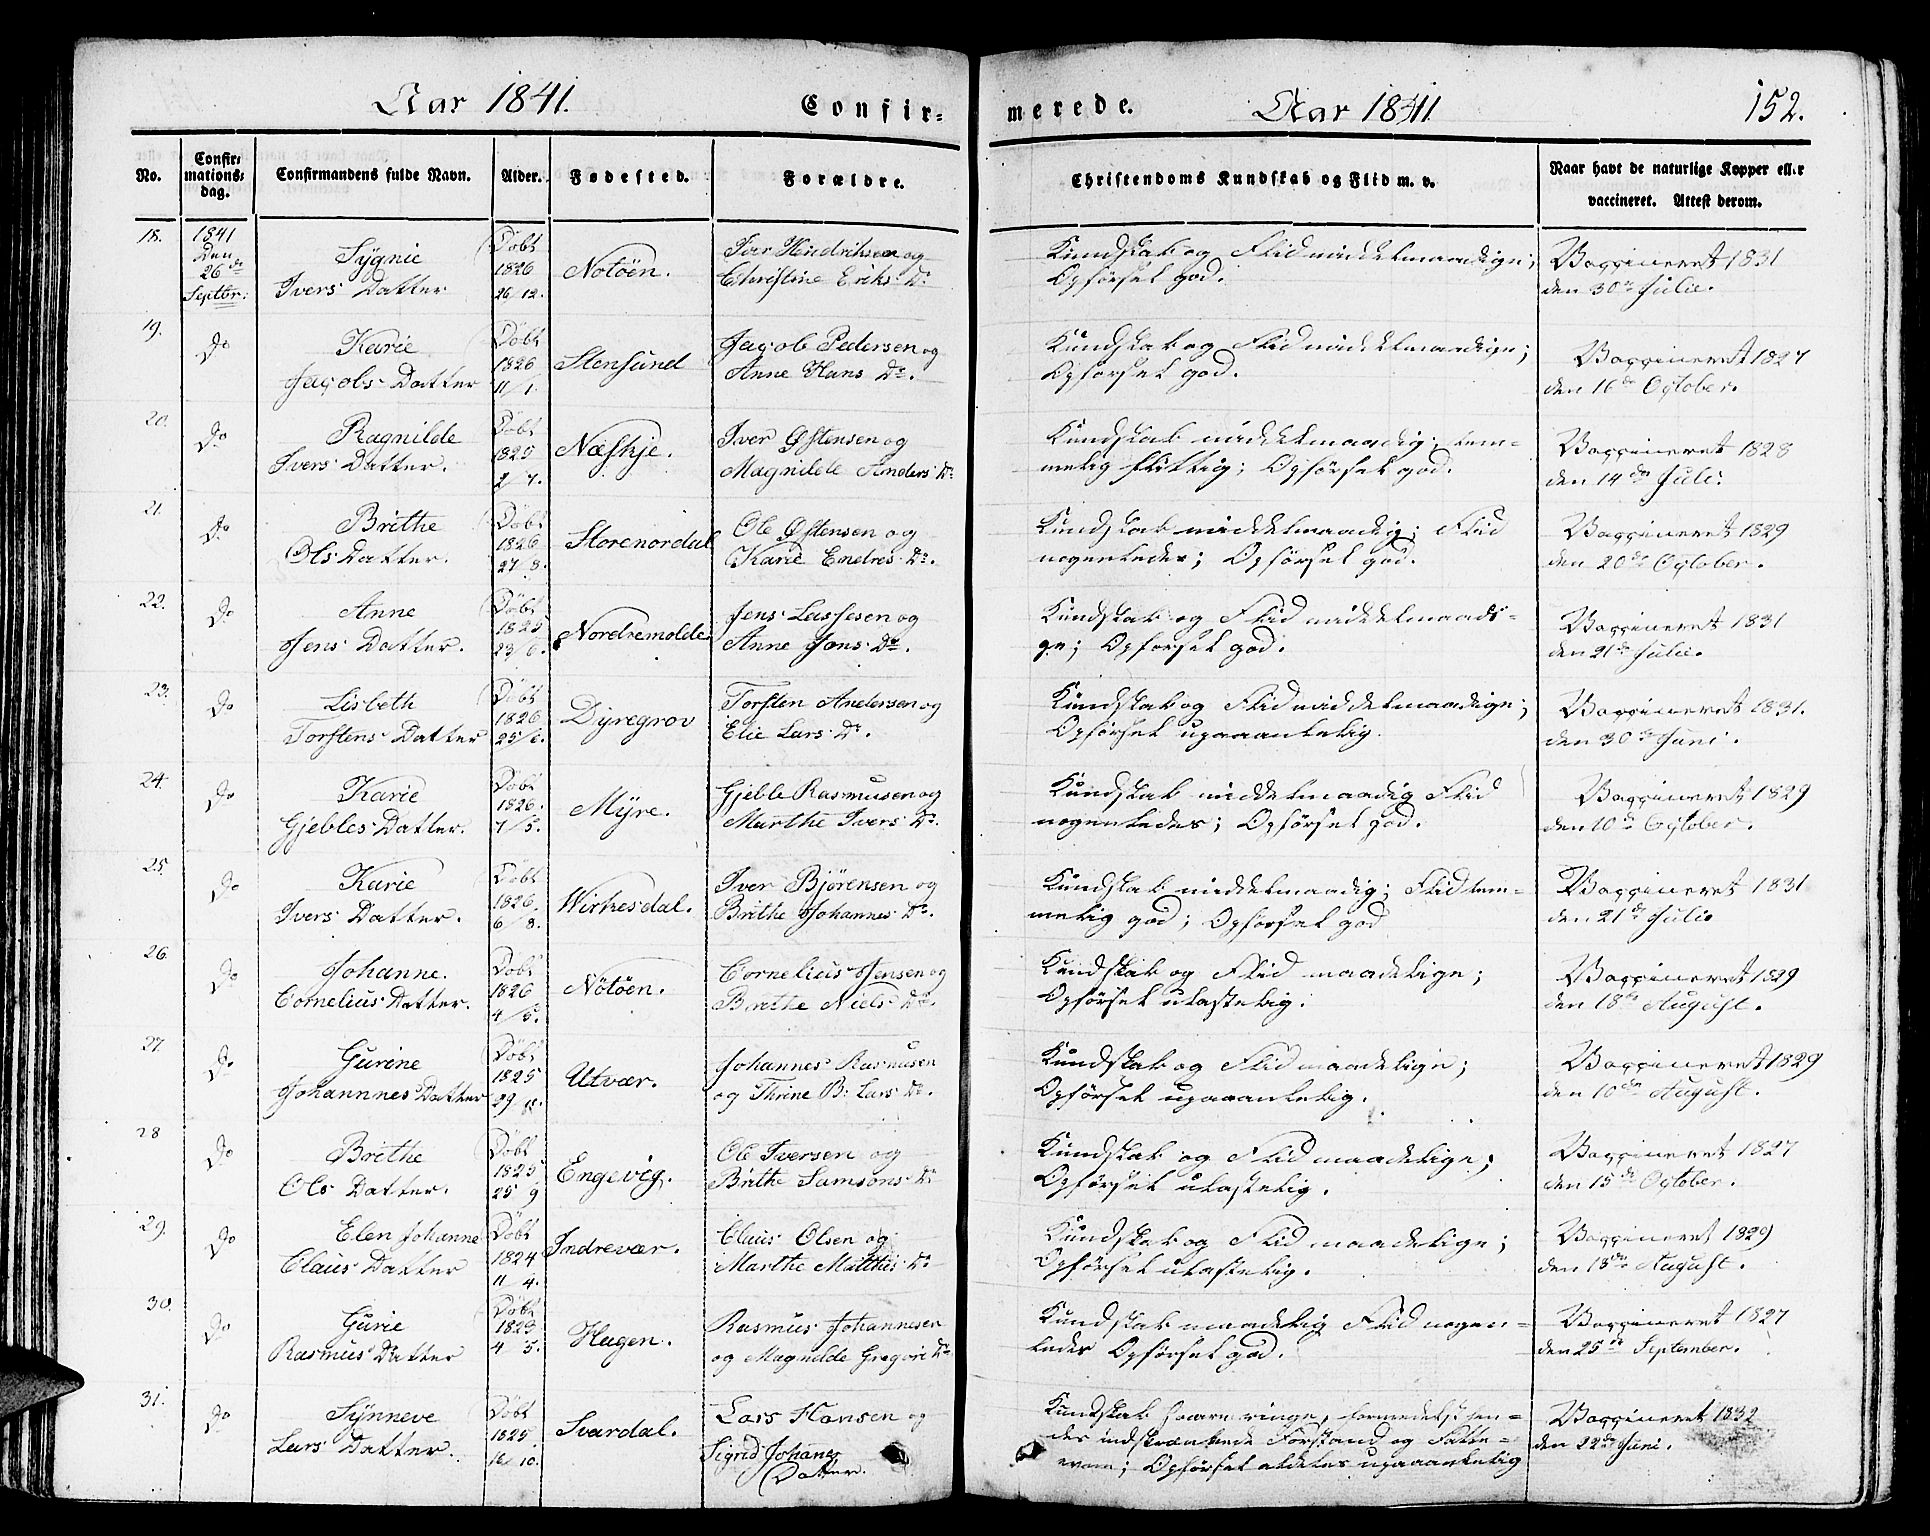 Aar 1841.
Confir-
merede.
Aar 1841
152.
No.
Confir-
mations-
dag.
Confirmandens fulde Navn.
Alder.
Fødested.
Forældre.
Christendoms Kundskab og Flid m. v.
Naar havt de naturlige Kopper eller
vaccineret. Attest derom.
18.
1841
Den
26de
Septbr:
Sygnie
Ivers Datter
Døbt
1826
26 12.
Notöen.
Iver Hendriksen og
Christine Eriks Dr
Kundskab og Flid middelmaadige;
Opførsel god.
Vaccineret 1831
den 30te Julie.
19.
Do
Karie
Jacobs Datter
Døbt
1826
11/1.
Stensund
Jacob Pedersen og
Anne Hans Dr.
Kundskab og Flid middelmaadige;
Opførsel god.
Vaccineret 1827
den 16de October.
20.
Do
Ragnilde
Ivers Datter.
Døbt
1825
2/7.
Næskje.
Iver Østensen og
Magnilde Anders Dr
Kundskab middelmaadig; tem-
melig flittig; Opførsel god.
Vaccineret 1828
den 14de Juli.
21.
Do
Brithe
Ols Datter.
Døbt
1826
27/8.
Storenordal
Ole Østensen og
Karie Endres Dr.
Kundskab middelmaadig; Flid
nogenledes; Opførsel god.
Vaccineret 1829
den 20de October.
22.
Do
Anne
Jens Datter.
Døbt
1825
23/6.
Nordremolde
Jens Lassesen og
Anne Jons Dr.
Kundskab og Flid middelmaadi-
ge; Opførsel god.
Vaccineret 1831
den 21de Julie.
23.
Do
Lisbeth
Torstens Datter
Døbt
1826
25/6.
Dyregrov
Torsten Andersen og
Elie Lars Dr.
Kundskab og Flid middelmaadige;
Opførsel upaaankelig.
Vaccineret 1831.
den 30te Juni.
24.
Do
Karie
Gjebles Datter.
Døbt
1826.
7/5.
Myre.
Gjeble Rasmusen og
Marthe Ivers Dr.
Kundskab middelmaadig Flid
nogenledes; Opførsel god.
Vaccineret 1829
den 10de October.
25.
Do
Karie
Ivers Datter.
Døbt
1826.
6/8.
Wirkesdal.
Iver Bjørensen og
Brithe Johannes Dr.
Kundskab middelmaadig; Flid tem-
melig god; Opførsel god
Vaccineret 1831
den 21de Julie
26.
Do
Johanne.
Cornelius Datter.
Døbt
1826
4/5.
Nötöen.
Cornelius Jensen og
Brithe Niels Dr.
Kundskab og Flid maadelige;
Opførsel ulastelig.
Vaccineret 1829
den 18de August.
27
Do
Gurine
Johannnes Datter
Døbt
1825
Utvær.
Johannes Rasmusen
og Thrine B: Lars Dr.
Kundskab og Flid maadelige;
Opførsel upaaankelig.
Vaccineret 1829
den 10de August.
28
Do
Brithe
Ols Datter.
Døbt
1825
25 9
Engevig.
Ole Iversen og
Brithe Samsons Dr
Kundskab og Flid maadelige;
Opførsel ulastelig.
Vaccineret 1827
den 15de October.
29.
Do
Elen Johanne
Claus Datter
Døbt
1824
11 4.
Indrevær.
Claus Olsen og
Marthe Matthis Dr
Kundskab og Flid maadelige;
Opførsel ulastelig.
Vaccineret 1829
den 18de August.
30.
Do
Gurie
Rasmus Datter
Døbt
1823
4 5.
Hagen.
Rasmus Johannesen
og Magnilde Gregori Dr
Kundskab maadelig Flid nogen-
ledes Opførsel god.
Vaccineret 1827
den 25de September.
31.
Do
Synneve
Lars Datter.
Døbt
1825.
16/10.
Svardal.
Lars Hansen og
Sigrid Johanes
Datter.
Kundskab svare ringe, formedelst hen-
des indskrænkede Forstand og Fatte-
evne; Opførsel aldeles upaaankelig
Vaccineret 1832
den 22de Juni.